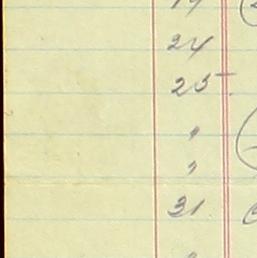 24
25
"
"
31
"